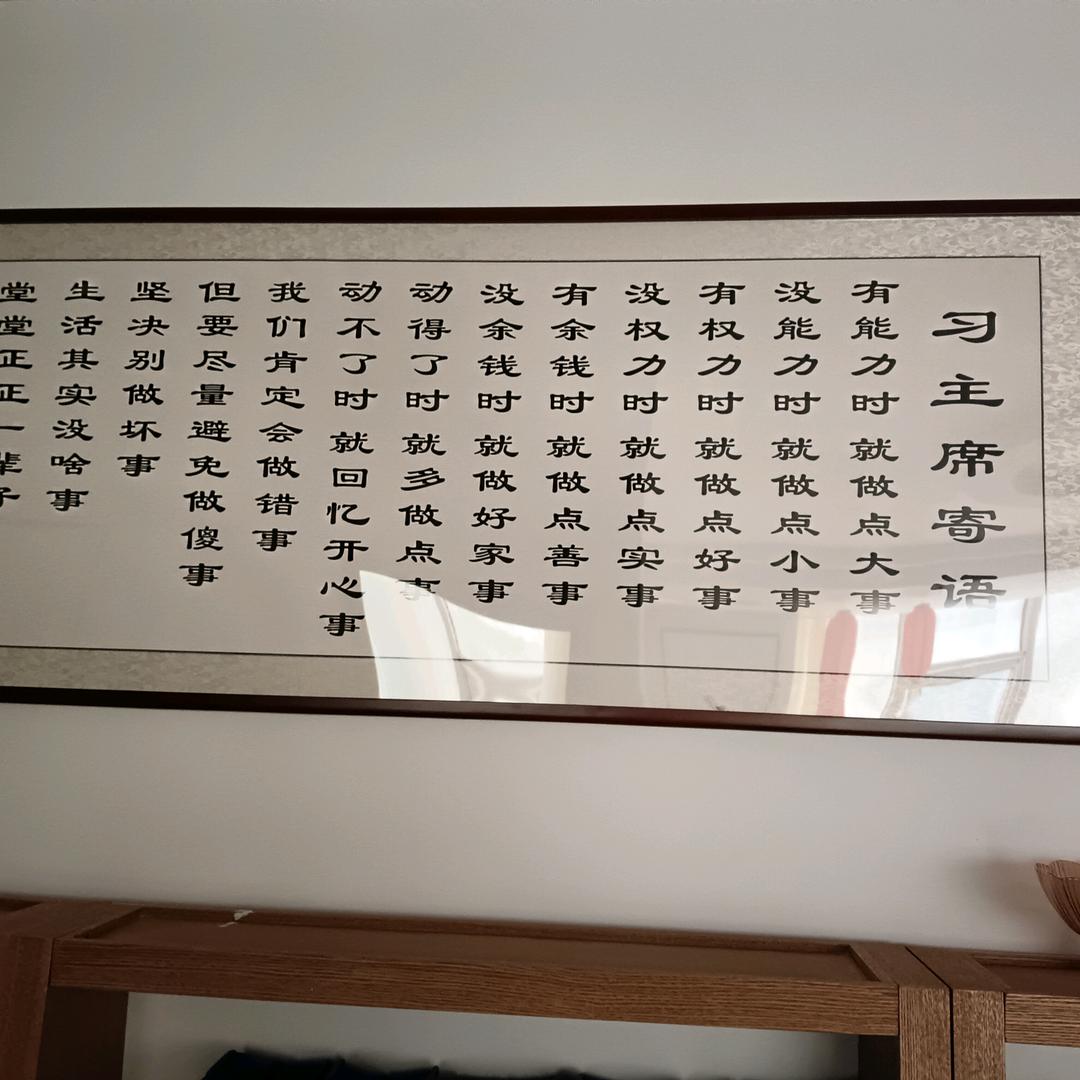 习主席寄语
有能力时 就做点大事
没能力时 就做点小事
有权力时 就做点好事
没权力时 就做点实事
有余钱时 就做点善事
没余钱时 就做好家事
动得了时 就多做点事
动不了时 就回忆开心事
我们肯定会做错事
但要尽量避免做傻事
坚决别做坏事
生活其实没啥事
堂堂正正一辈子